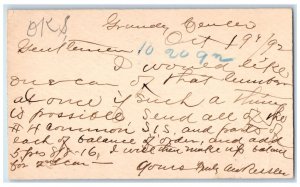 OKS
Grundy Center
Oct 19th/92
Gentlemen
10 20 92
I would like
one car of that lumber
at once if such a thing
is possible Send all of the
#4 common S1S. and parts of
each of balance of order, and add
5 pcs 16. I will then make up balance
for car
Yours Truly